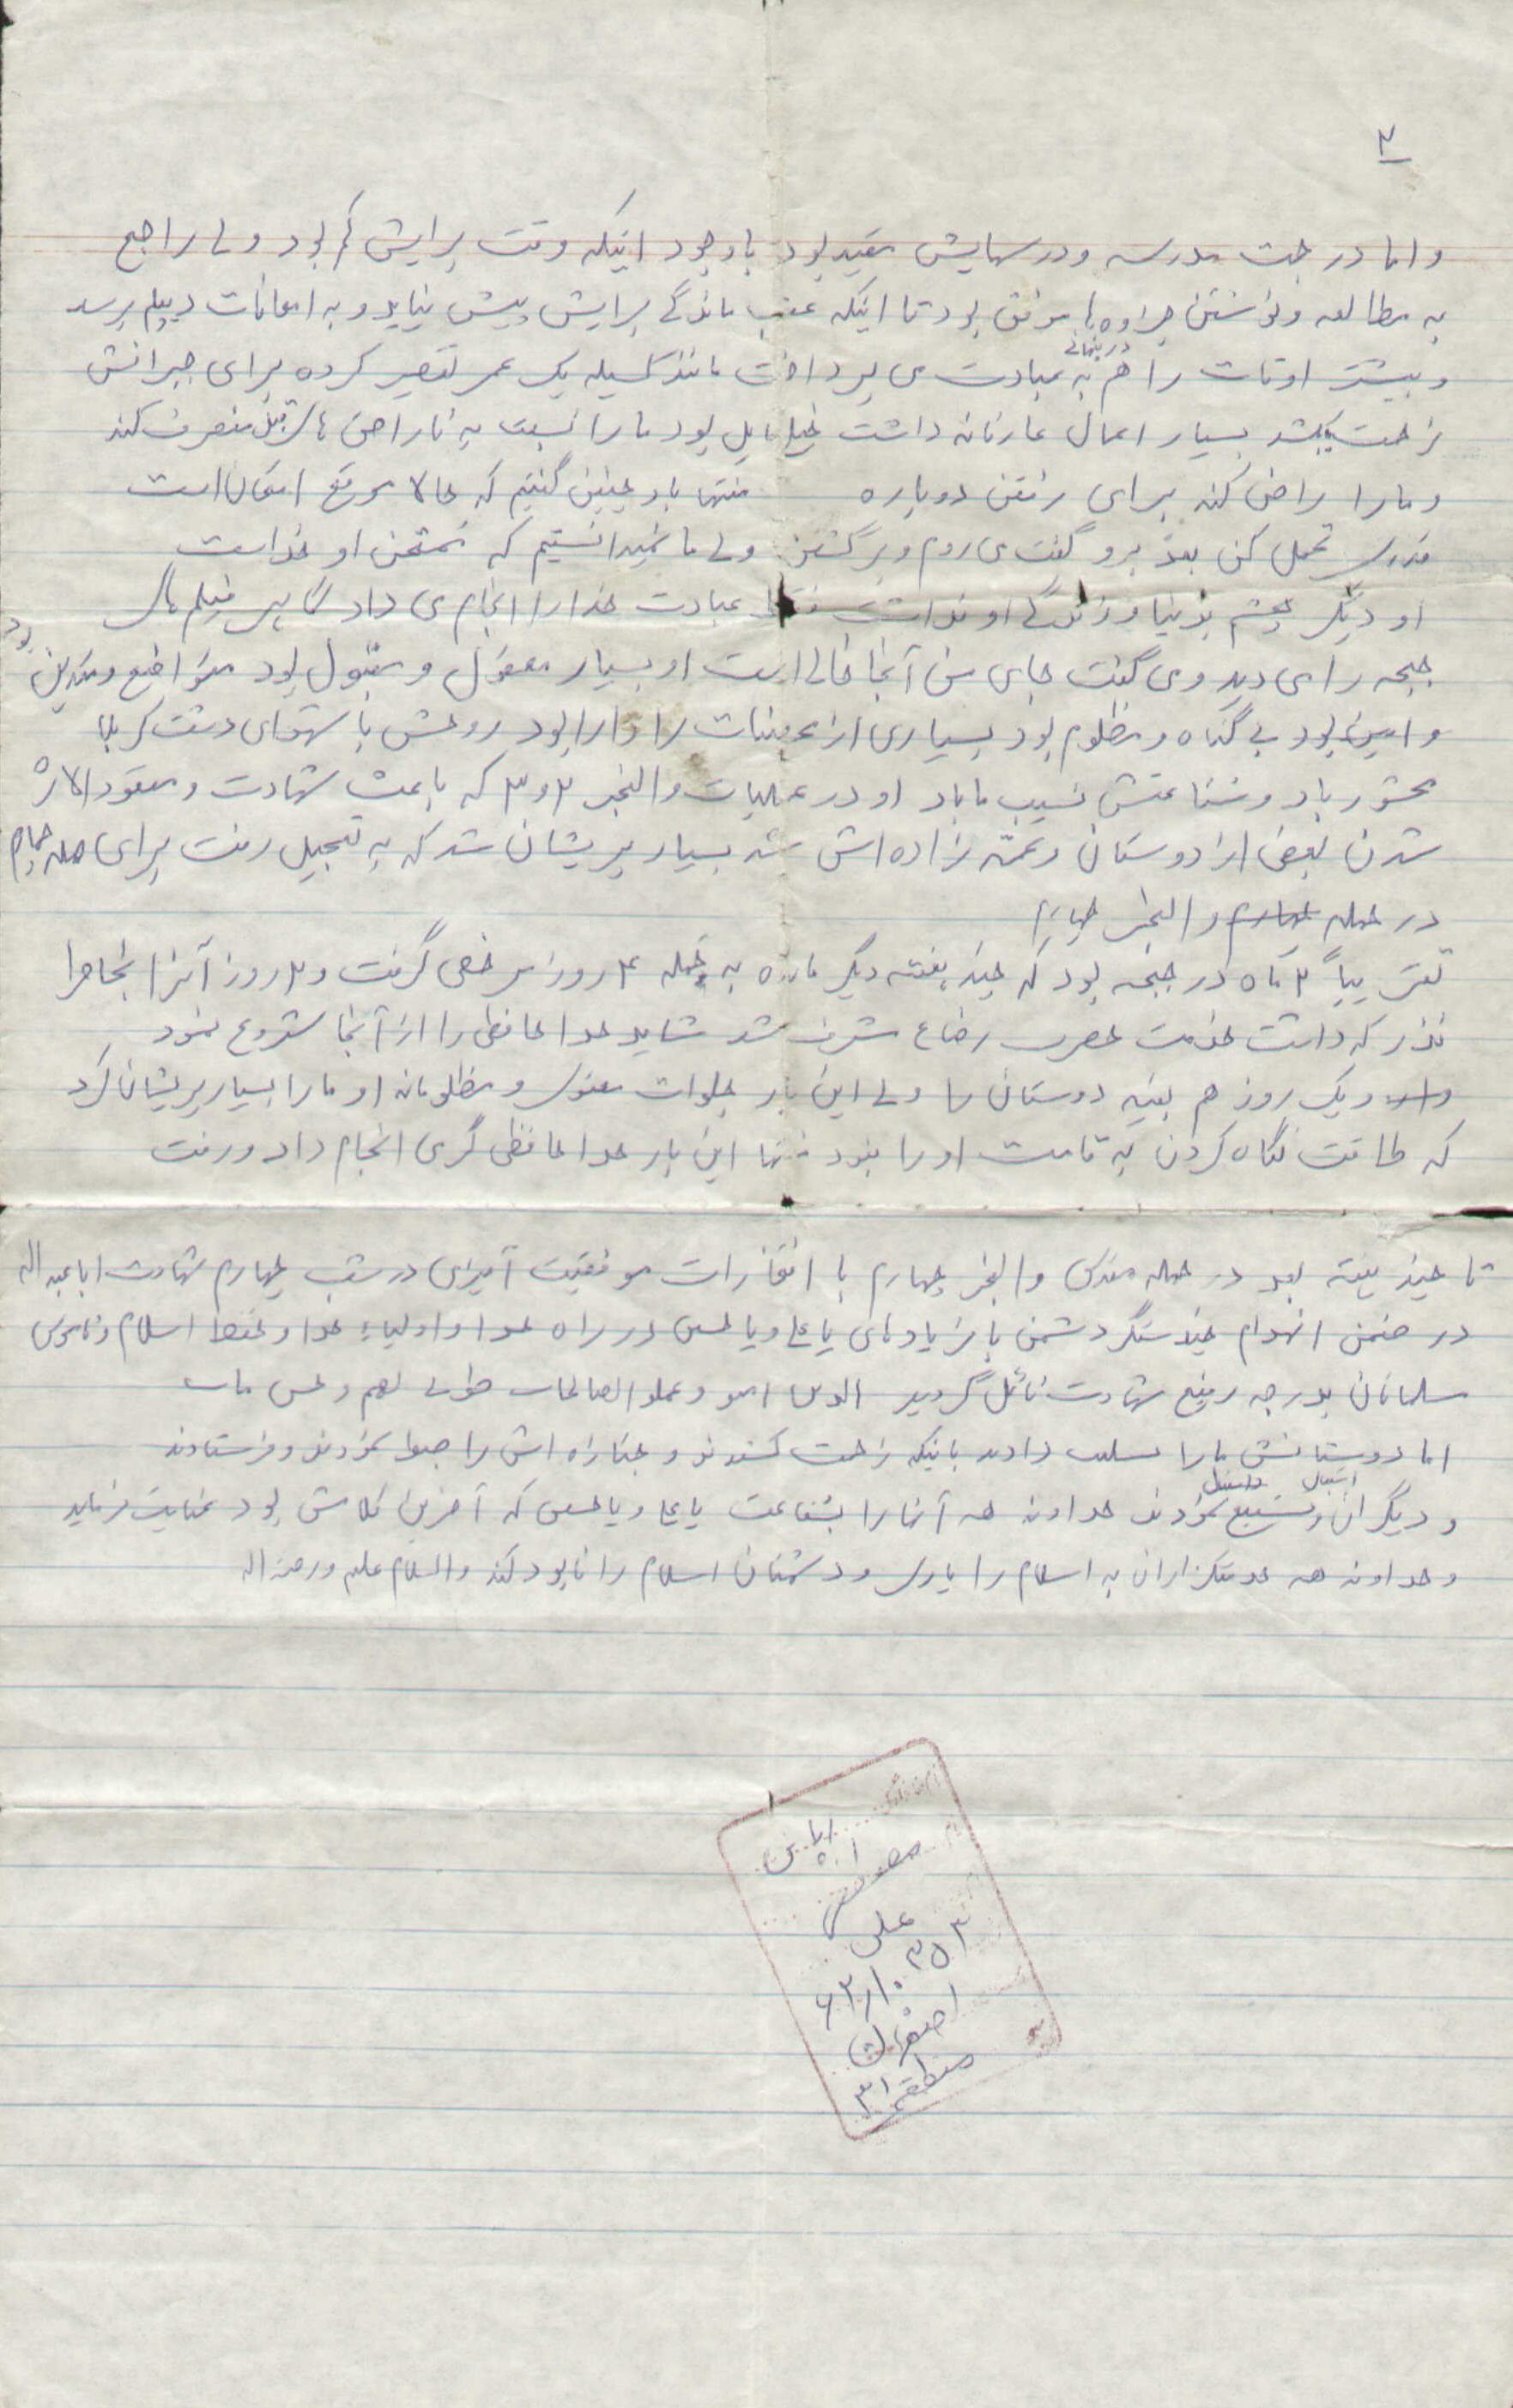 ۲
و اما در جهت مدرسه و درسهایش مقید بود با وجود اینکه وقت برایش کم بود ولی راجع
به مطالعه و نوشتن جزاوه ها موفق بود تا اینکه عقب ماندگی برایش پیش نیاید و به امتحانات دیپلم برسد
و بیشتر اوقات را هم در پنهانی به عبادت می پرداخت مانند کسیکه یک عمر تقصیر کرده برای جبرانش
زحمت بکشد بسیار اعمال عارفانه داشت خیلی مایل بود ما را نسبت به ناراضی های قبل منصرف کند
و ما را راضی کند برای رفتن دوباره منتها باو چنین گفتیم که حالا موقع امتحان است
قدری تحمل کن بعد برو گفت می روم و برگشتن ولی ما نمیدانستیم که ممتحن او خداست
او دیگر چشم بدنیا و زندگی او نداشت فقط عبادت خدا را انجام می داد گاهی فیلم های
جبهه را می دید و می گفت جای من آنجا خالی است او بسیار معقول و مقبول بود متواضع و متدین بود
و امین بود بی گناه و مظلوم بود بسیاری از محسنات را دارا بود روحش با شهدای دشت کربلا
محشور باد و شفاعتش نسیب ما باد او در عملیات والفجر ۲ و ۳ که باعث شهادت و مفقود الاثر
شدن بعضی از دوستان و عمه زاده اش شد بسیار پریشان شد که به تعجیل رفت برای حمله چهارم
در حمله چهارم والفجر چهارم
تقریباً ۲ ماه در جبهه بود که چند هفته دیگر مانده به حمله ۴ روز مرخصی گرفت و ۲ روز آنرا بخاطر
نذر که داشت خدمت حضرت رضا ع مشرف شد شاید خدا حافظی را از آنجا شروع نمود
و یک روز هم بقیه دوستان را ولی این بار جلوات معنوی و مظلومانه او ما را بسیار پریشان کرد
که طاقت نگاه کردن به قامت او را نبود منتها این بار خدا حافظی گرمی انجام داد و رفت
تا چند هفته بعد در حمله مقدس والفجر چهارم با افتخارات موفقیت آمیزی در شب چهارم شهادت اباعبداله
در ضمن انهدام چند سنگر دشمن با فریادهای یا علی و یا حسین در راه خدا و اولیاء خدا و حفظ اسلام و ناموس
مسلمانان بدرجه رفیع شهادت نائل گردید الذین امنو و عملو الصالحات طوبی لهم و حسن ماب
اما دوستانش ما را تسلیت دادند باینکه زحمت کشیدند و جنازه اش را ضبط نمودند و فرستادند
و دیگران استقبال و تشییع نمودند خداوند همه آنها را بشفاعت یا علی و یا حسین که آخرین کلامش بود عنایت فرماید
و خداوند همه خدمتگزاران به اسلام را یاری و دشمنان اسلام را نابود کند والسلام علیکم و رحمة اله
علی
۳۵۳
۶۲/۱۰
اصفهان
منطقه ۳۱